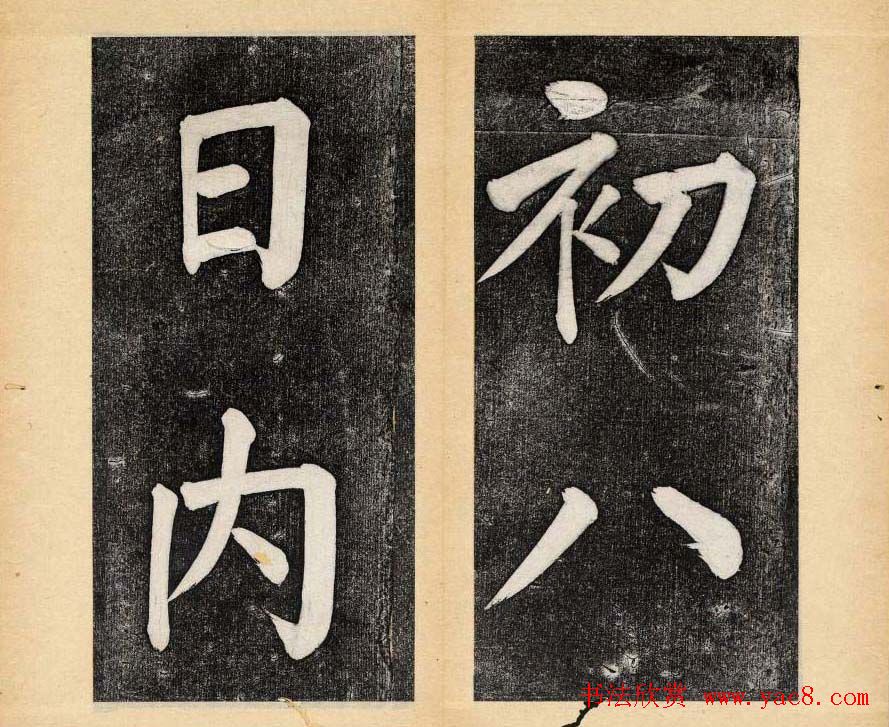 初八
日内
书法欣赏 www.yac8.com